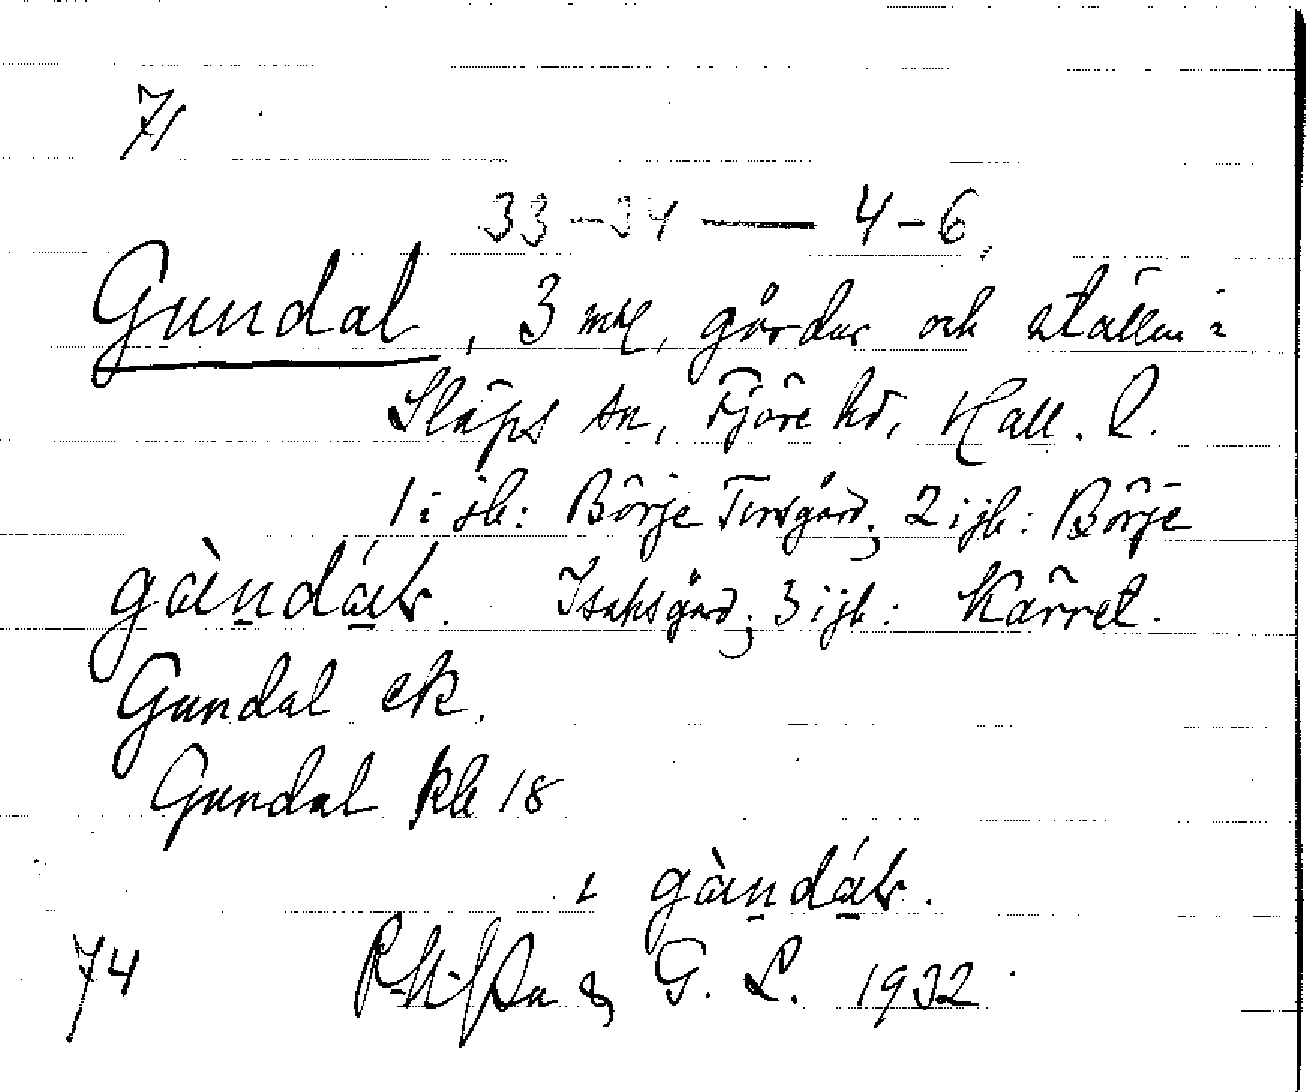 71
33-34 — 4-6.
Gundal, 3 mtl, gårdar och ställen i
Släps sn, Fjäre hd, Hall. l.
1 i jb: Börje Torsgård; 2 i jb: Börje
gàndál. Isaksgård; 3 i jb: Kärret.
Gundal ek.
Gundal kb 18
i gàndál.
& G. L. 1932
74